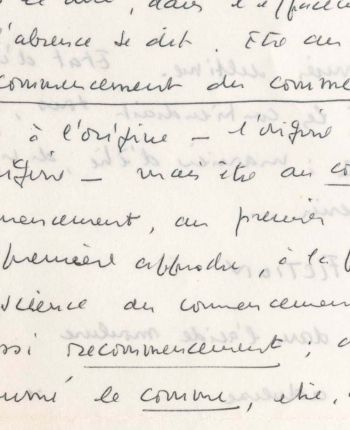 l'absence se dit. Etre au
commencement du comme
à l'origine — l'origine
igine — mais être au co
mencement, au premier
première approche, à la
science du commencemen
ssi recommencement,
le comme, être,